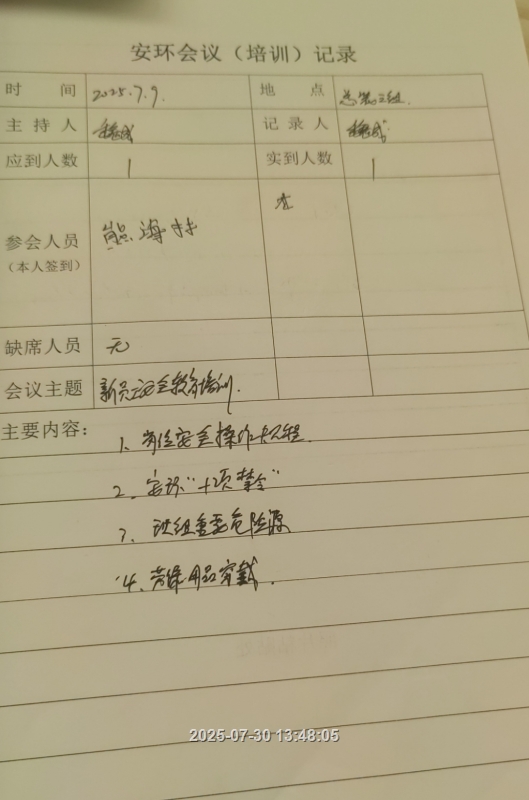 安环会议（培训）记录
时 间 2025.7.9. 地 点 总装三组.
主 持 人 记 录 人
应到人数 1 实到人数 1
参会人员 熊海林
（本人签到）
缺席人员 无
会议主题 新员工安全教育培训.
主要内容：
1、岗位安全操作规程.
2、安环“十项禁令”
3、班组重要危险源
4、劳保用品穿戴.
2025-07-30 13:48:05